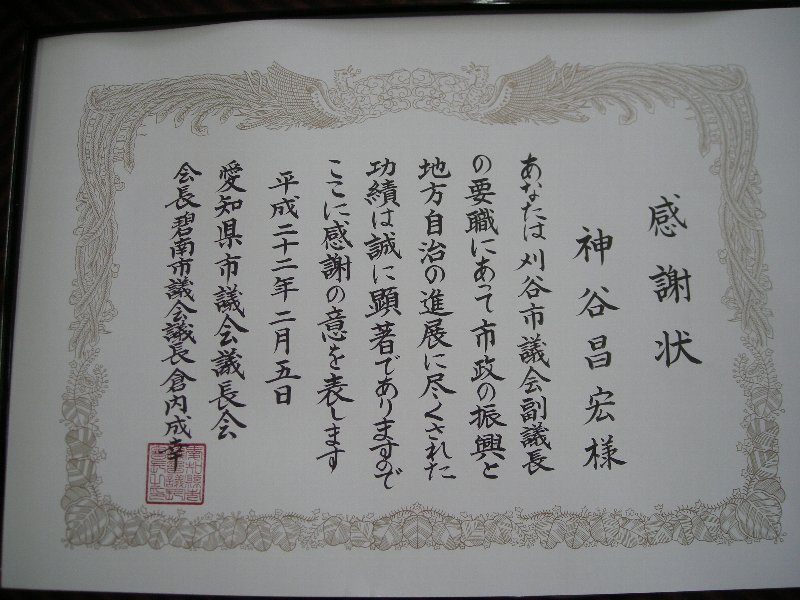 感謝状
神谷昌宏様
あなたは刈谷市議会副議長
の要職にあって市政の振興と
地方自治の進展に尽くされた
功績は誠に顕著でありますので
ここに感謝の意を表します
平成二十二年二月五日
愛知県市議会議長会
会長碧南市議会議長倉内成幸